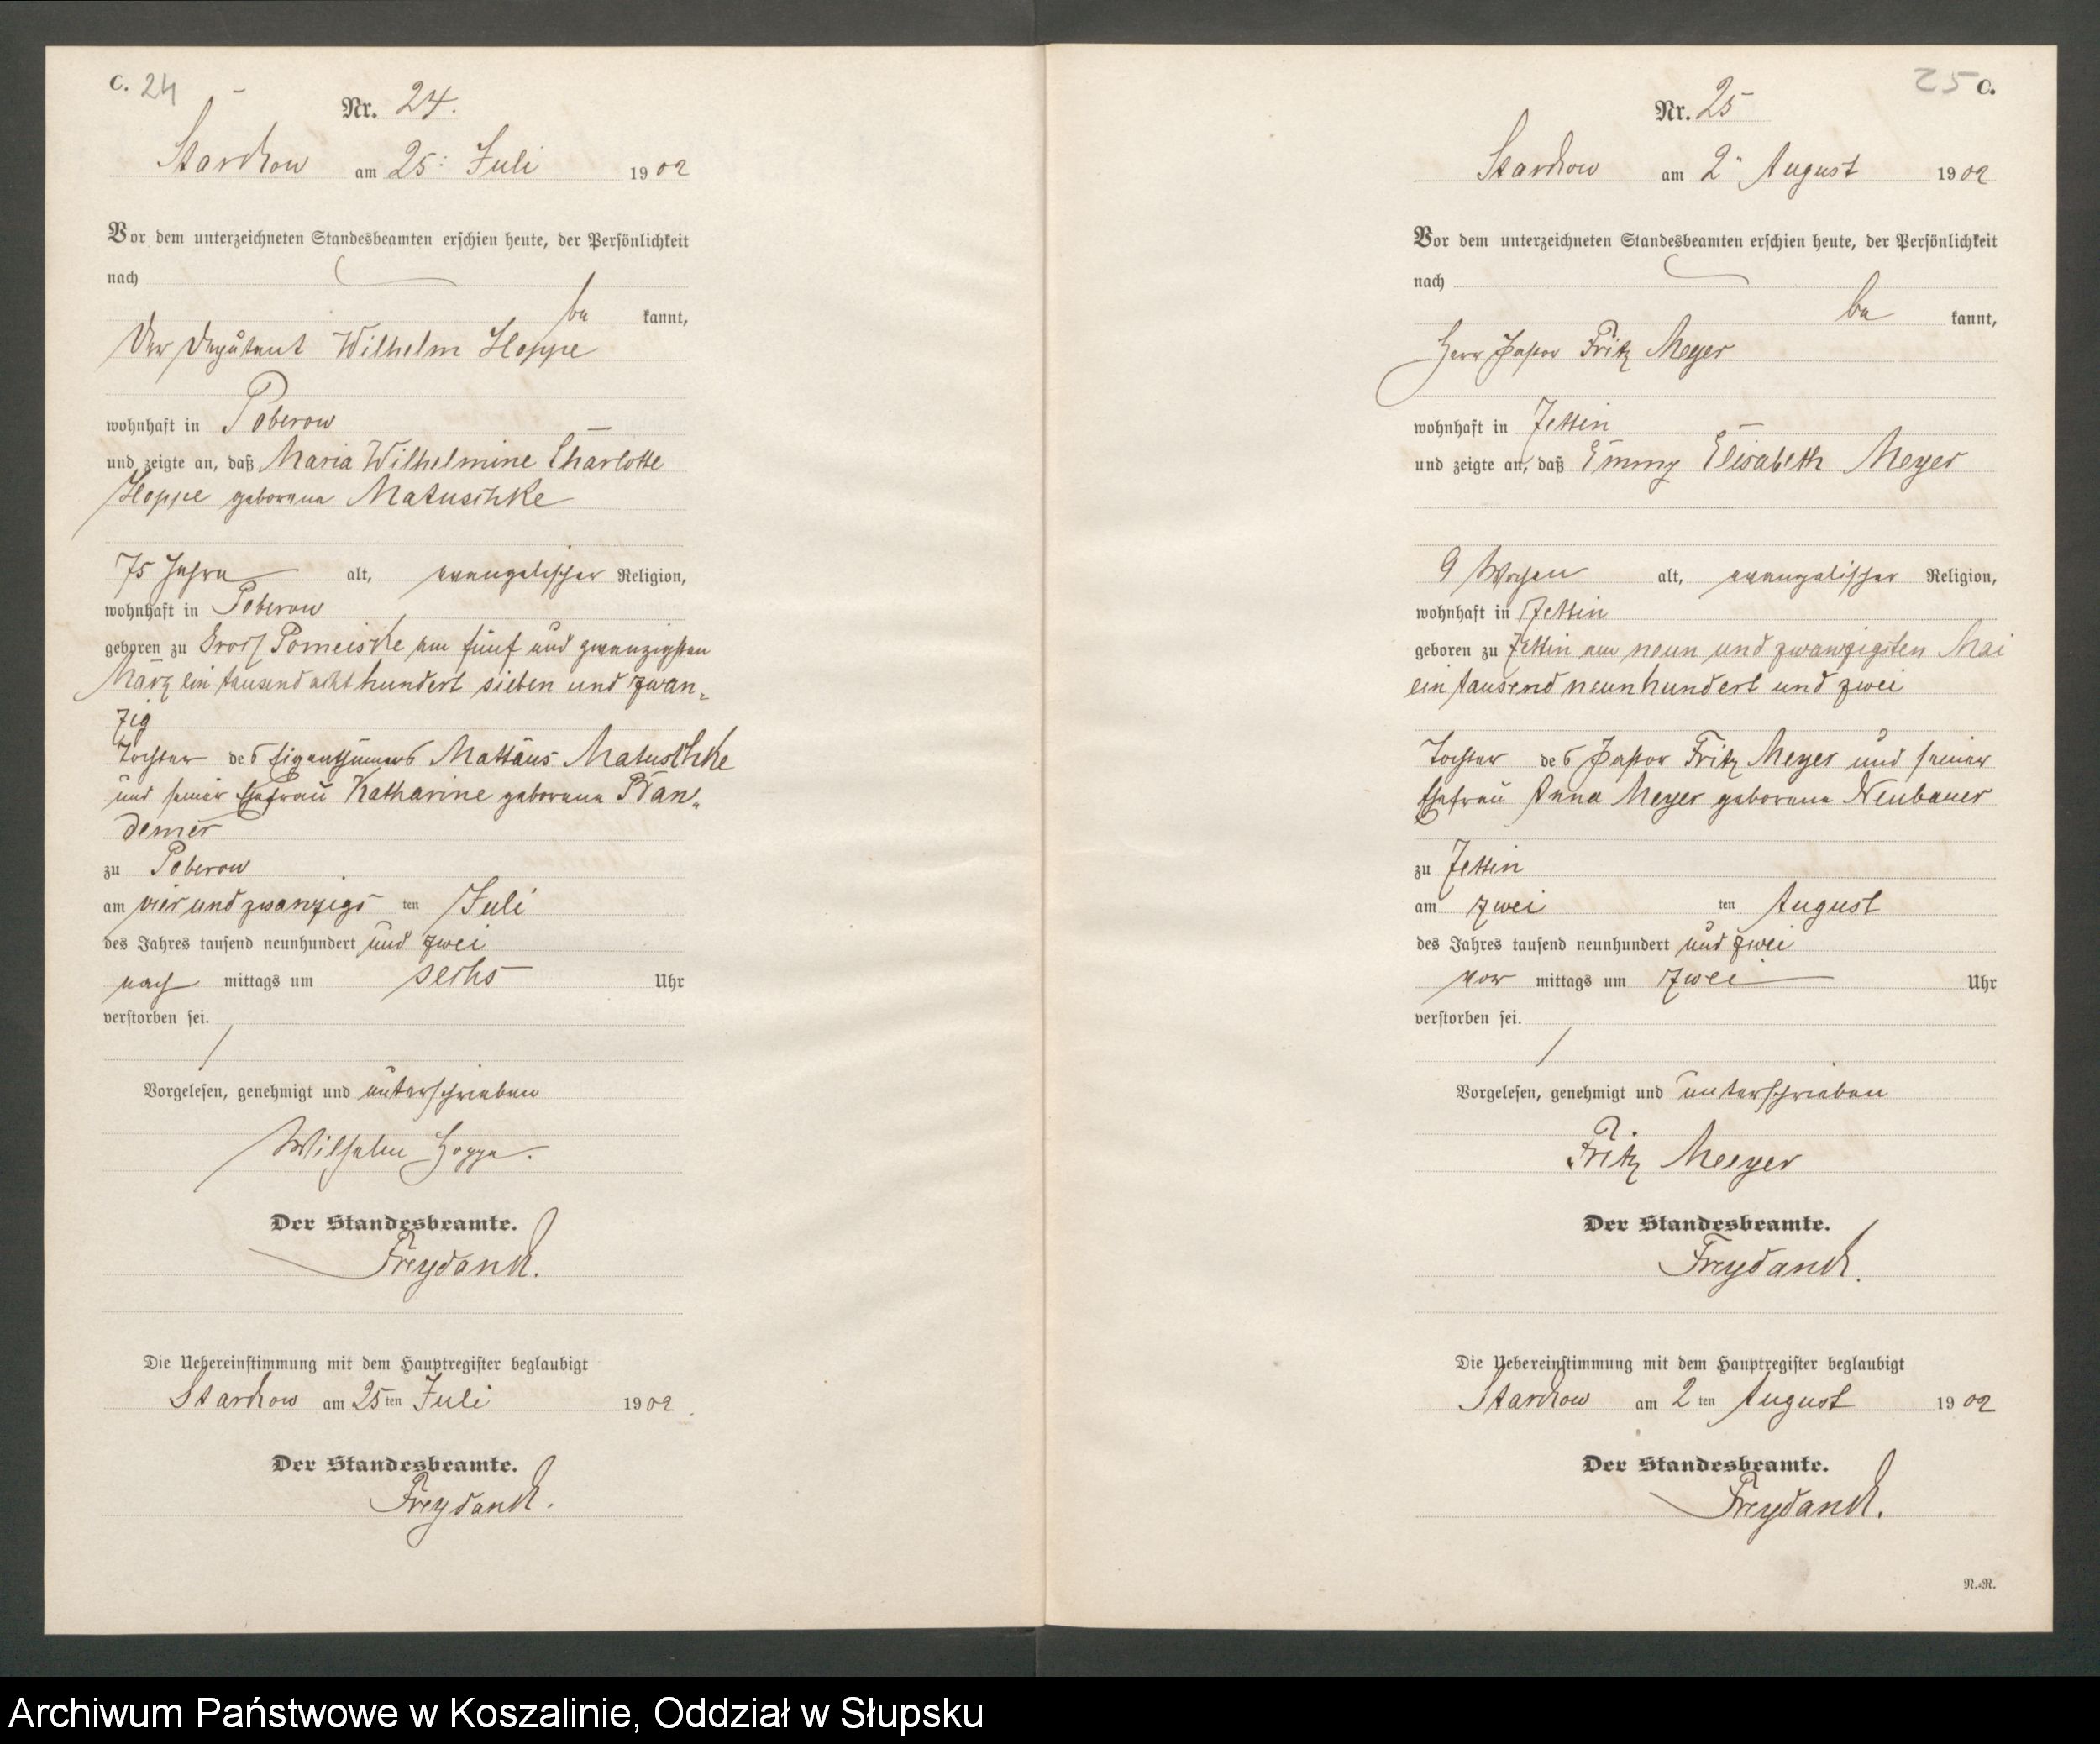 C. 24
Nr. 24.
Starckow am 25: Juli 1902
Vor dem unterzeichneten Standesbeamten erschien heute, der Persönlichkeit
nach
be kannt,
Der Deputant Wilhelm Hoppe
wohnhaft in Poberow
und zeigte an, daß Maria Wilhelmine Charlotte
Hoppe geborene Matuschke
75 Jahre alt, evangelischer Religion,
wohnhaft in Poberow
geboren zu Gross Pomeiske am fünf und zwanzigsten
März ein tausend acht hundert sieben und zwan-
zig
Tochter des Eigenthümers Mattäus Matuschke
und seiner Ehefrau Katharine geborene
zu Poberow
am vier und zwanzigs ten Juli
des Jahres tausend neunhundert und zwei
nach mittags um sechs Uhr
verstorben sei.
Vorgelesen, genehmigt und unterschrieben
Wilhelm Hoppe.
Der Standesbeamte.
Freydanck.
Die Uebereinstimmung mit dem Hauptregister beglaubigt
Starckow am 25ten Juli 1902
Der Standesbeamte.
Freydanck.
25 C.
Nr. 25
Starckow am 2" August 1902
Vor dem unterzeichneten Standesbeamten erschien heute, der Persönlichkeit
nach
be kannt,
Herr Pastor Fritz Meyer
wohnhaft in Zettin
und zeigte an, daß Emmy Elisabeth Meyer
9 Wochen alt, evangelischer Religion,
wohnhaft in Zettin
geboren zu Zettin am neun und zwanzigsten Mai
ein tausend neunhundert und zwei
Tochter des Pastor Fritz Meyer und seiner
Ehefrau Anna Meyer geborene Neubauer
zu Zettin
am zwei ten August
des Jahres tausend neunhundert und zwei
vor mittags um zwei Uhr
verstorben sei.
Vorgelesen, genehmigt und unterschrieben
Fritz Meeyer
Der Standesbeamte.
Freydanck.
Die Uebereinstimmung mit dem Hauptregister beglaubigt
Starckow am 2 ten August 1902
Der Standesbeamte.
Freydanck.
N.-N.
Archiwum Państwowe w Koszalinie, Oddział w Słupsku